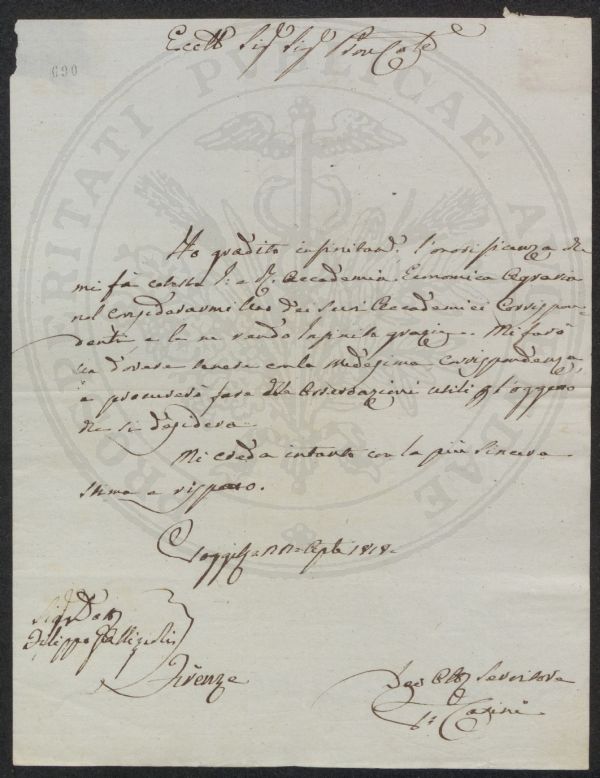 690
Eccell. Sig. Sig. Pron Col.
Ho gradito infinitam. l'onorificenza che
mi fà cotesta I. e R. Accademia Economica Agraria
nel considerarmi Uno dei suoi Accademici Corrispon
denti e le ne rendo Infinite grazie. Mi farò
un dovere tenere con la medesima corrispondenza
e procurerò fare delle Osservazioni utili p l'oggetto
che si desidera.
Mi creda intanto con la più sincera
stima e rispetto.
1818
Sig. Dott.
Filippo Gallizioli
Firenze
Servitore
PROSPERITATI PUBLICAE AUGENDAE